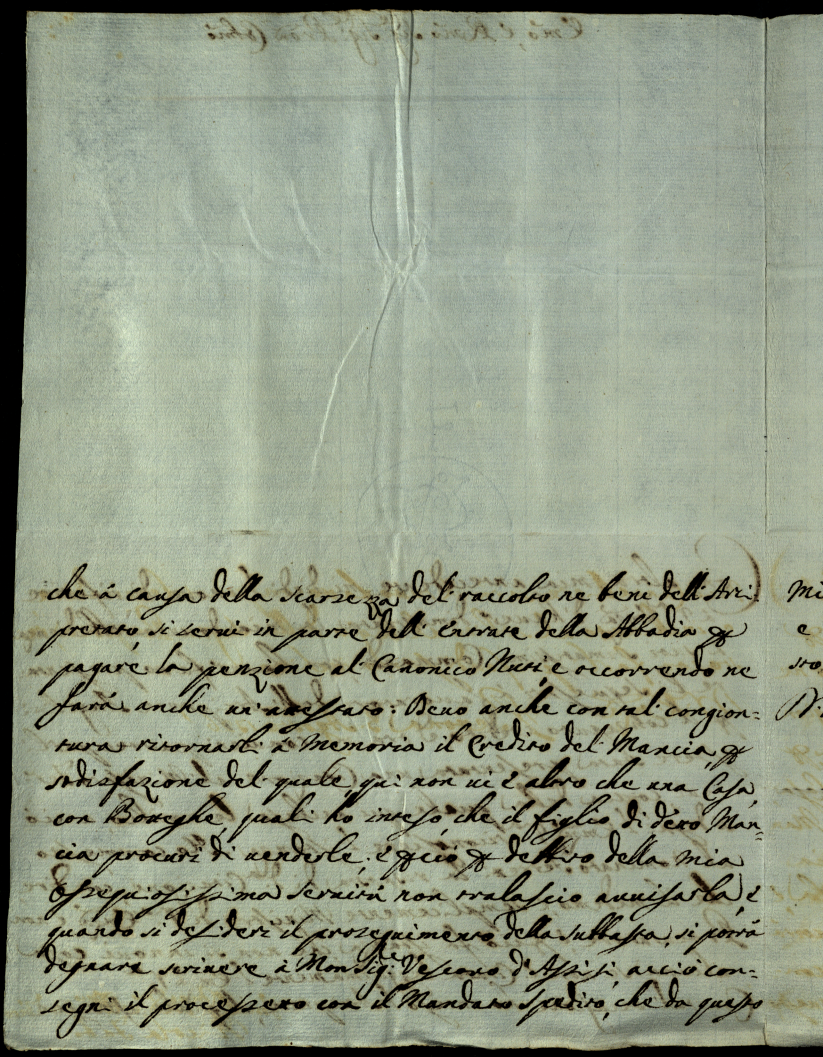 che á causa della scarsezza del raccolto ne beni dell'Arci-
pretato, si servi in parte dell'entrate della Abbadia per
pagare la penzione al Canonico Nuti, e occorrendo ne
farà anche un'attestato: Devo anche con tal congion-
tura ritornarli á memoria il Credito del Mancia, per
sodisfazione del quale, qui non vi é altro che una Casa
con Botteghe, quali hò inteso, che il figlio di detto Man-
cia procuri di venderle; e per ció per debito della mia
ossequiosissima servitù non tralascio avvisarla, e
quando si desideri il proseguimento della subbasta, si potrá
degnare scrivere á Monsig.re Vescovo d'Assisi, acció con-
segni il processetto con il Mandato spedito, che da questo
mi
e
sto